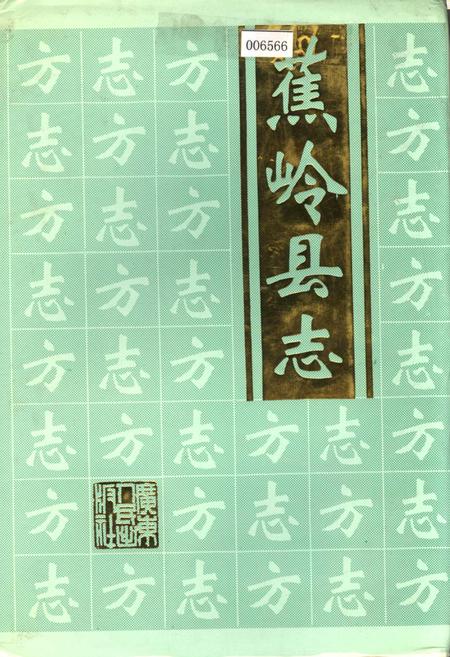 006566
蕉岭县志
方 志 方 志
志 方 志 方
方 志 方 志
志 方 志 方
方 志 方 志
志 方 志 方 志 方
方 方 志 方 志
志 方 志 方 志 方
廣東
人民出
版社